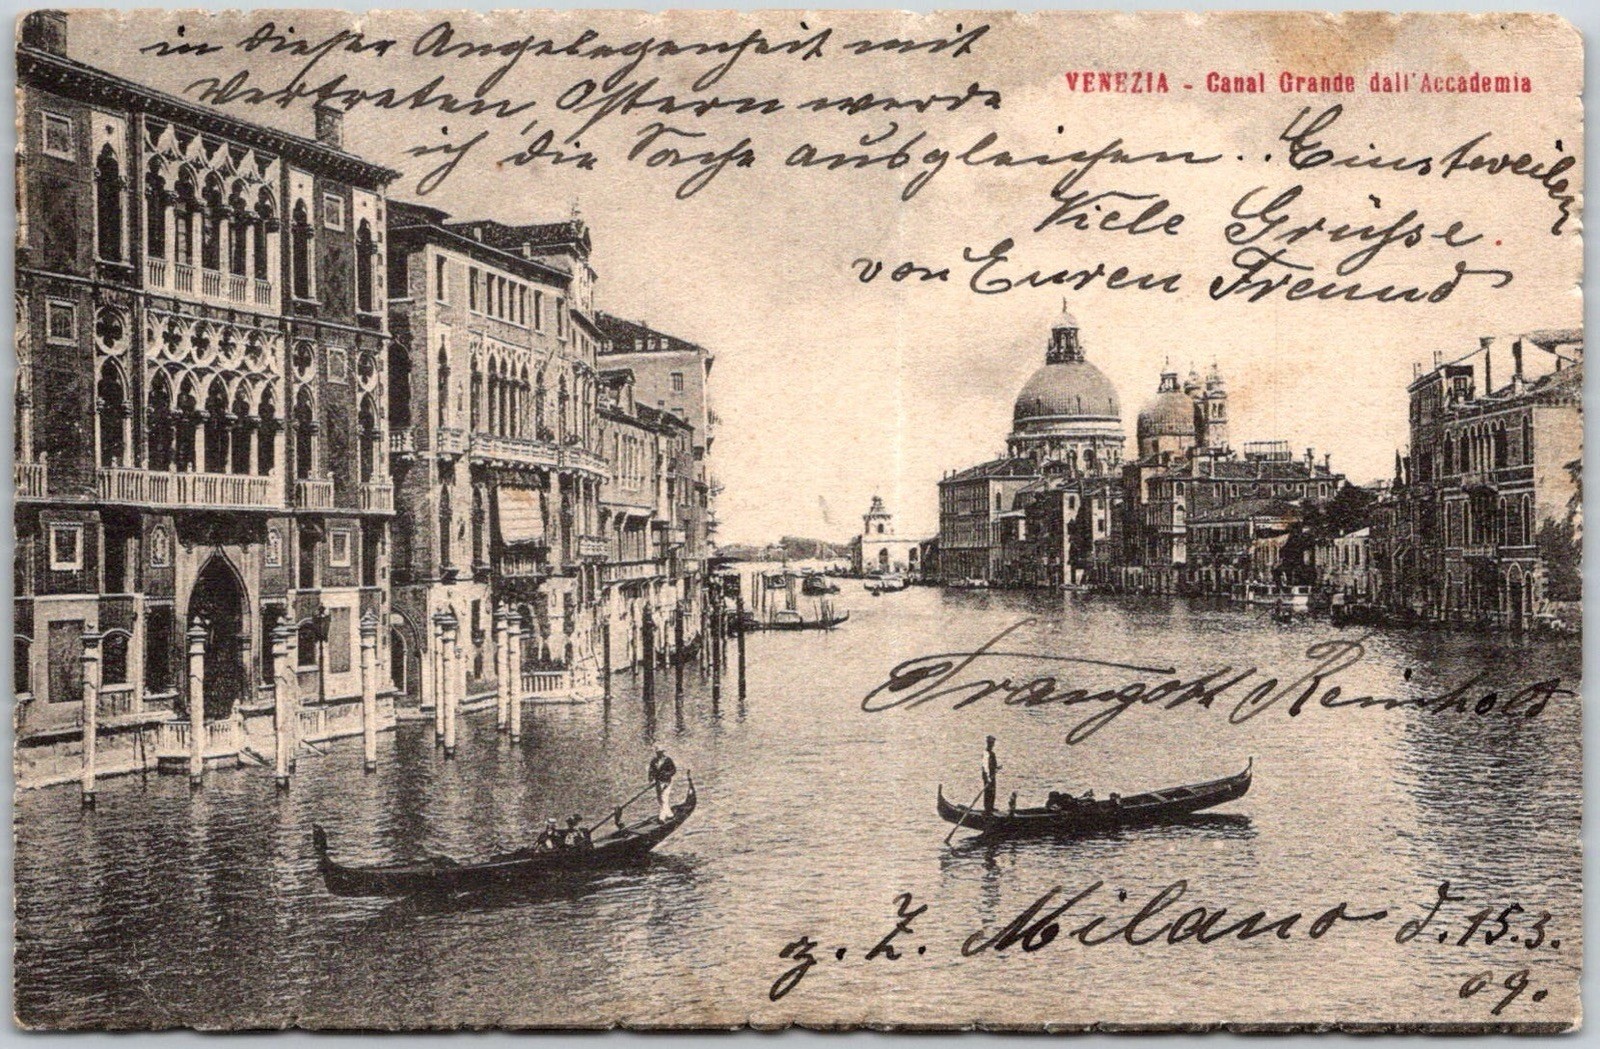 in dieser Angelegenheit mit
Vertreten, Ostern werde
ich die Sache ausgleichen.. Einstweilen
Viele Grüsse
von Euren Freund
Traugott Reinhold
z. Z. Milano d. 15.3.
09.
VENEZIA - Canal Grande dall'Accademia